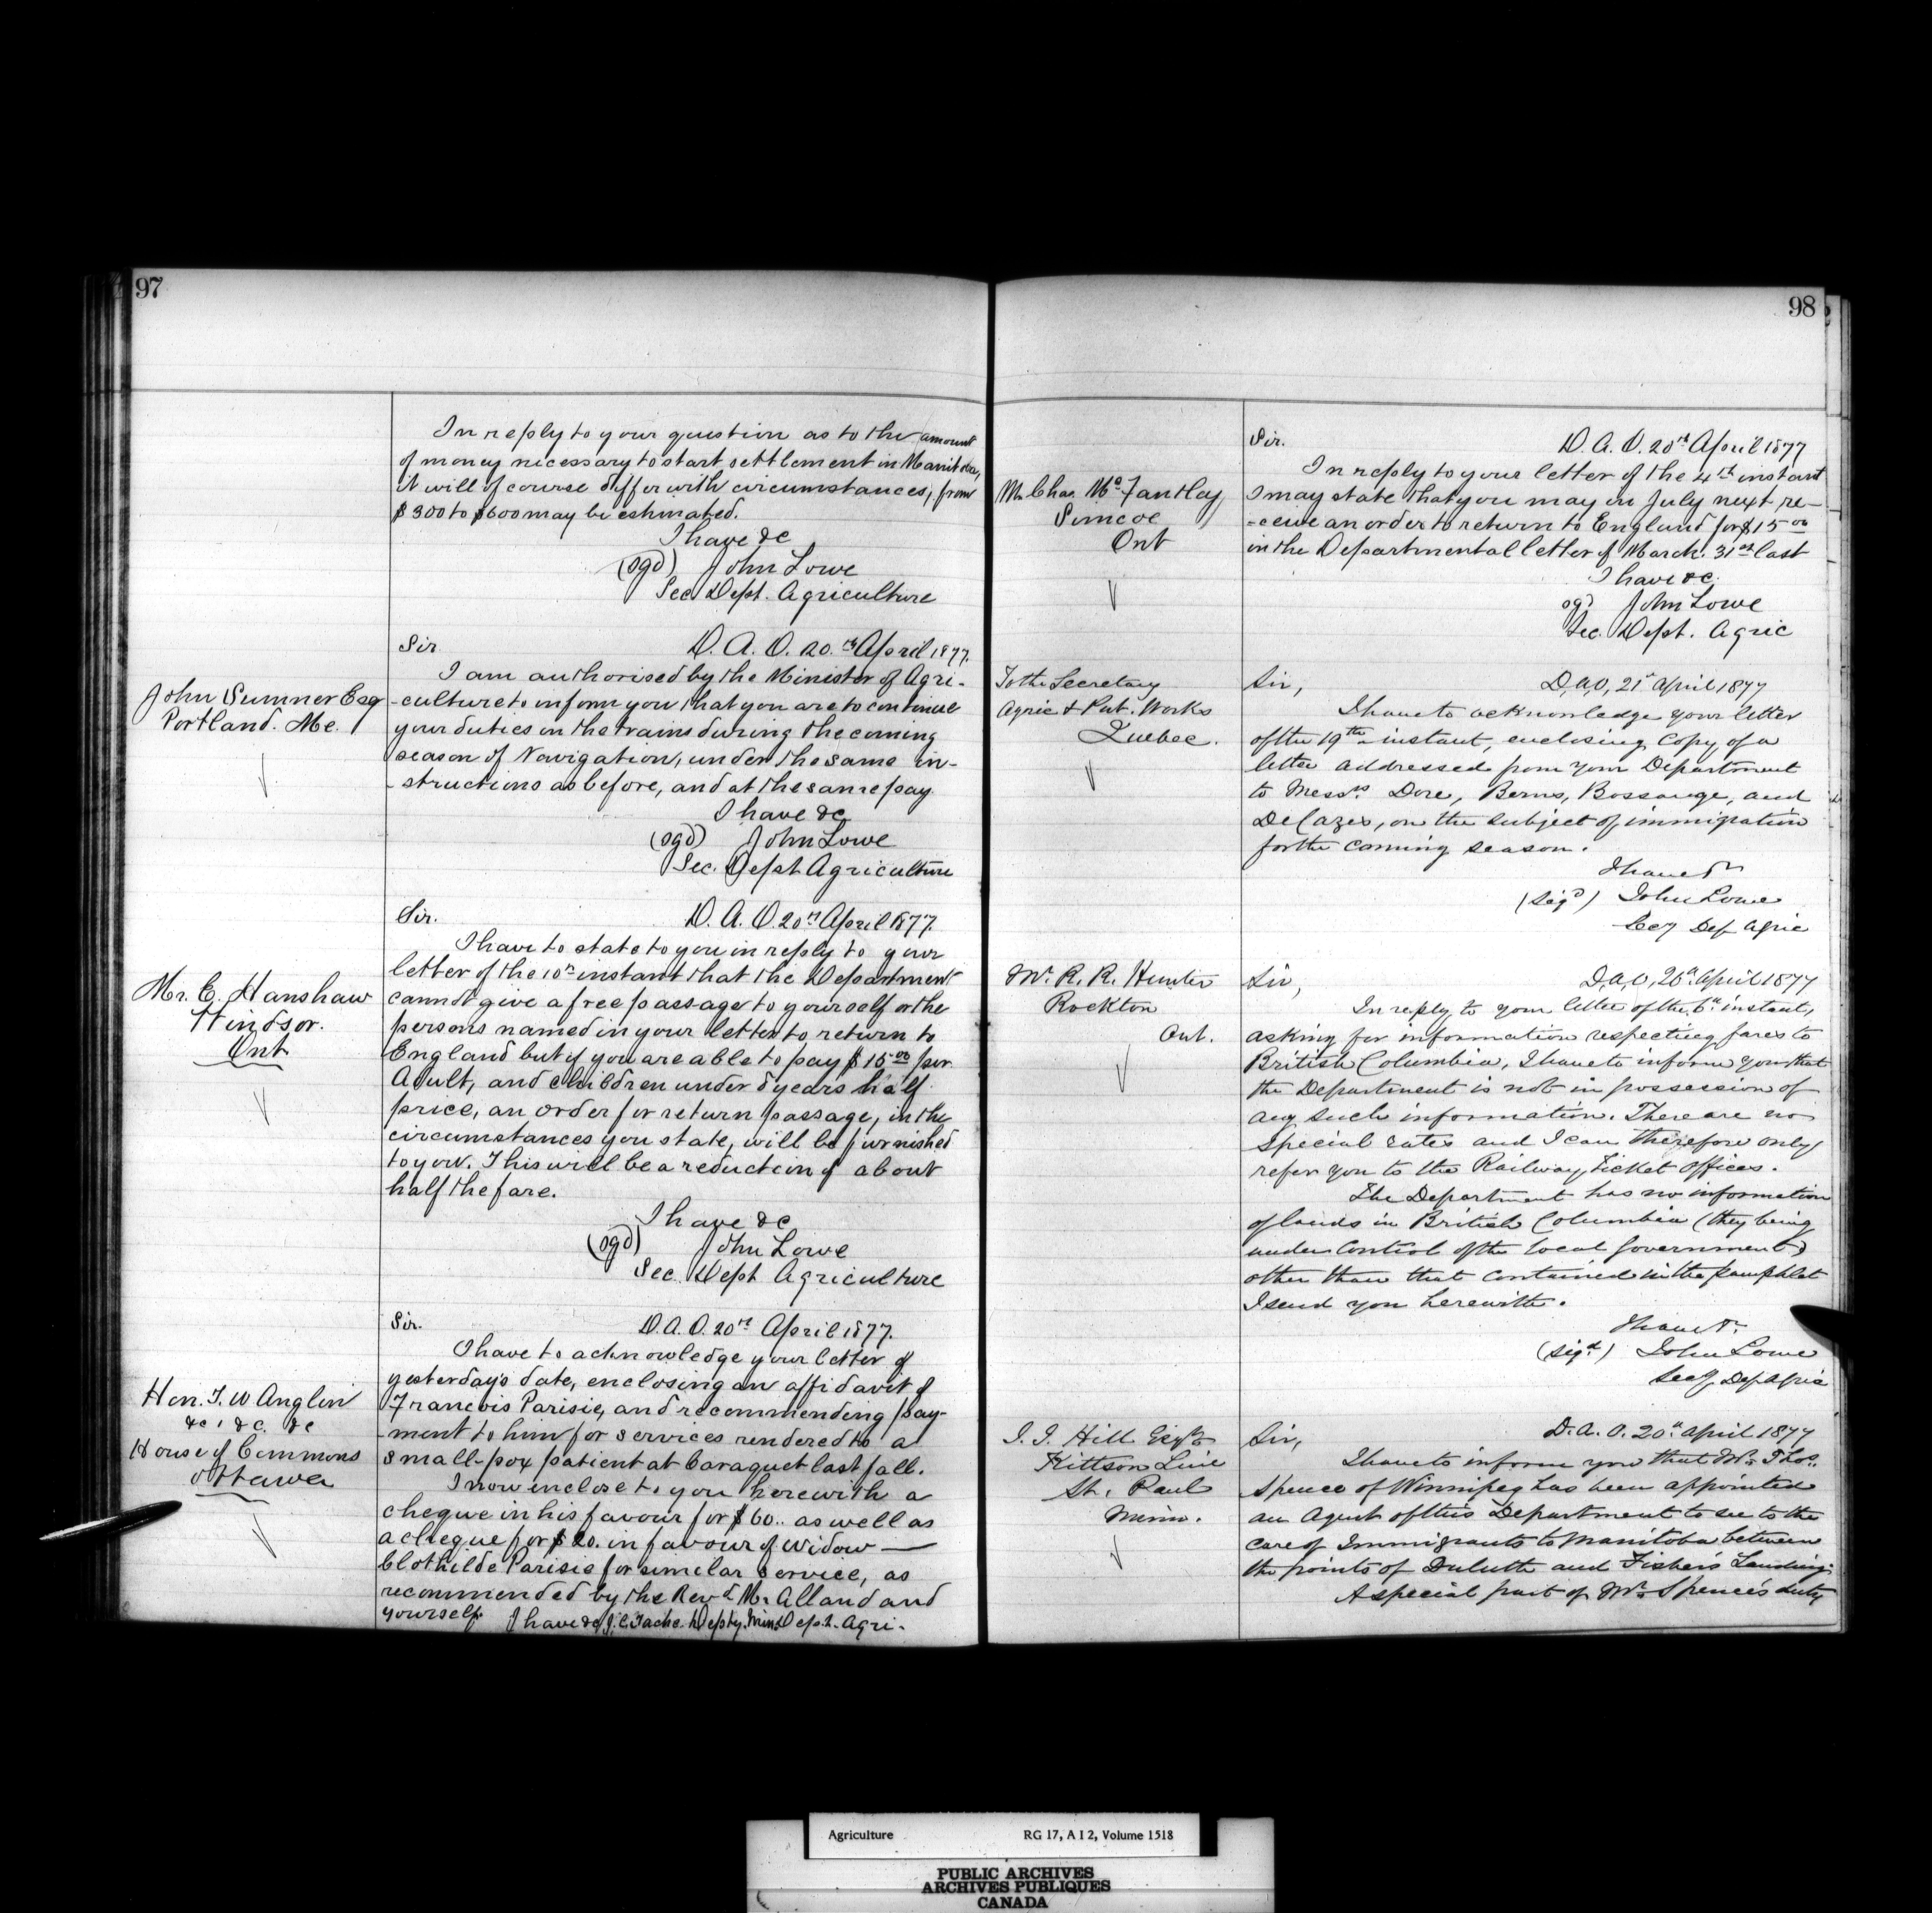 97
In reply to your question as to the amount
of money necessary to start settlement in Manitoba,
it will of course differ with circumstances; from
$300 to $600 may be estimated.
I have &c
(sgd) John Lowe
Sec. Dept. Agriculture
Sir D. A. O. 20th April 1877.
John Sumner Esq
Portland. Me.
I am authorised by the Minister of Agri-
-culture to inform you that you are to continue
your duties on the trains during the coming
season of Navigation, under the same in-
-structions as before, and at the same pay.
I have &c
(sgd) John Lowe
Sec. Dept Agriculture
Sir. D. A. O. 20th April 1877.
Mr. E. Hanshaw
Windsor.
Ont
I have to state to you in reply to your
letter of the 10th instant that the Department
cannot give a free passage to yourself or the
persons named in your letter to return to
England but if you are able to pay $15.00 per
Adult, and children under 8 years half
price, an order for return passage, in the
circumstances you state, will be furnished
to you. This will be a reduction of about
half the fare.
I have &c
(sgd) John Lowe
Sec. Dept Agriculture
Sir. D. A. O. 20th April 1877.
Hon. T. W Anglin
&c, &c. &c
House of Commons
Ottawa
I have to acknowledge your letter of
yesterday's date, enclosing an affidavit of
Francois Parisie, and recommending pay-
-ment to him for services rendered to a
small-pox patient at Caraquet last fall.
I now inclose to you herewith a
cheque in his favour for $60.. as well as
a cheque for $20. in favour of widow —
Clothilde Parisie for similar service, as
recommended by the Revd Mr Alland and
yourself. I have &c J. C. Tache. Depty. Min. Dept. Agri.
98
Sir. D. A. O. 20th April 1877
Mr Chas. Mc Fantley
Simcoe
Ont
In reply to your letter of the 4th instant
I may state that you may in July next re-
-ceive an order to return to England for $15.00
in the Departmental letter of March. 31st last
I have &c
sgd John Lowe
Sec. Dept. Agric
Sir, D, A, O, 21st April 1877
To the Secretary
Agric & Pub. Works
Quebec.
I have to acknowledge your letter
of the 19th instant, enclosing Copy of a
letter addressed from your Department
to Messrs. Dore, Berns, Bossange, and
DeCazes, on the subject of immigration
for the coming season.
I have &c
(Sigd) John Lowe
Secy Dep Agric
Sir, D, A, O, 20th April 1877
Mr. R. R. Hunter
Rockton
Ont.
In reply to your letter of the 6th instant,
asking for information respecting fares to
British Columbia, I have to inform you that
the Department is not in possession of
any such information. There are no
special rates and I can therefore only
refer you to the Railway ticket offices.
The Department has no information
of lands in British Columbia (they being
under control of the local government)
other than that contained in the pamphlet
I send you herewith.
I have &c.
(Sigd) John Lowe
Secy Dep Agric
Sir, D. A. O. 20th April 1877
J. J. Hill Esqre
Kittson Line
St. Paul
Minn.
I have to inform you that Mr. Thos.
Spence of Winnipeg has been appointed
an Agent of this Department to see to the
care of Immigrants to Manitoba between
the points of Duluth and Fisher's Landing.
A special part of Mr. Spence's duty
Agriculture RG 17, A I 2, Volume 1518
PUBLIC ARCHIVES
ARCHIVES PUBLIQUES
CANADA